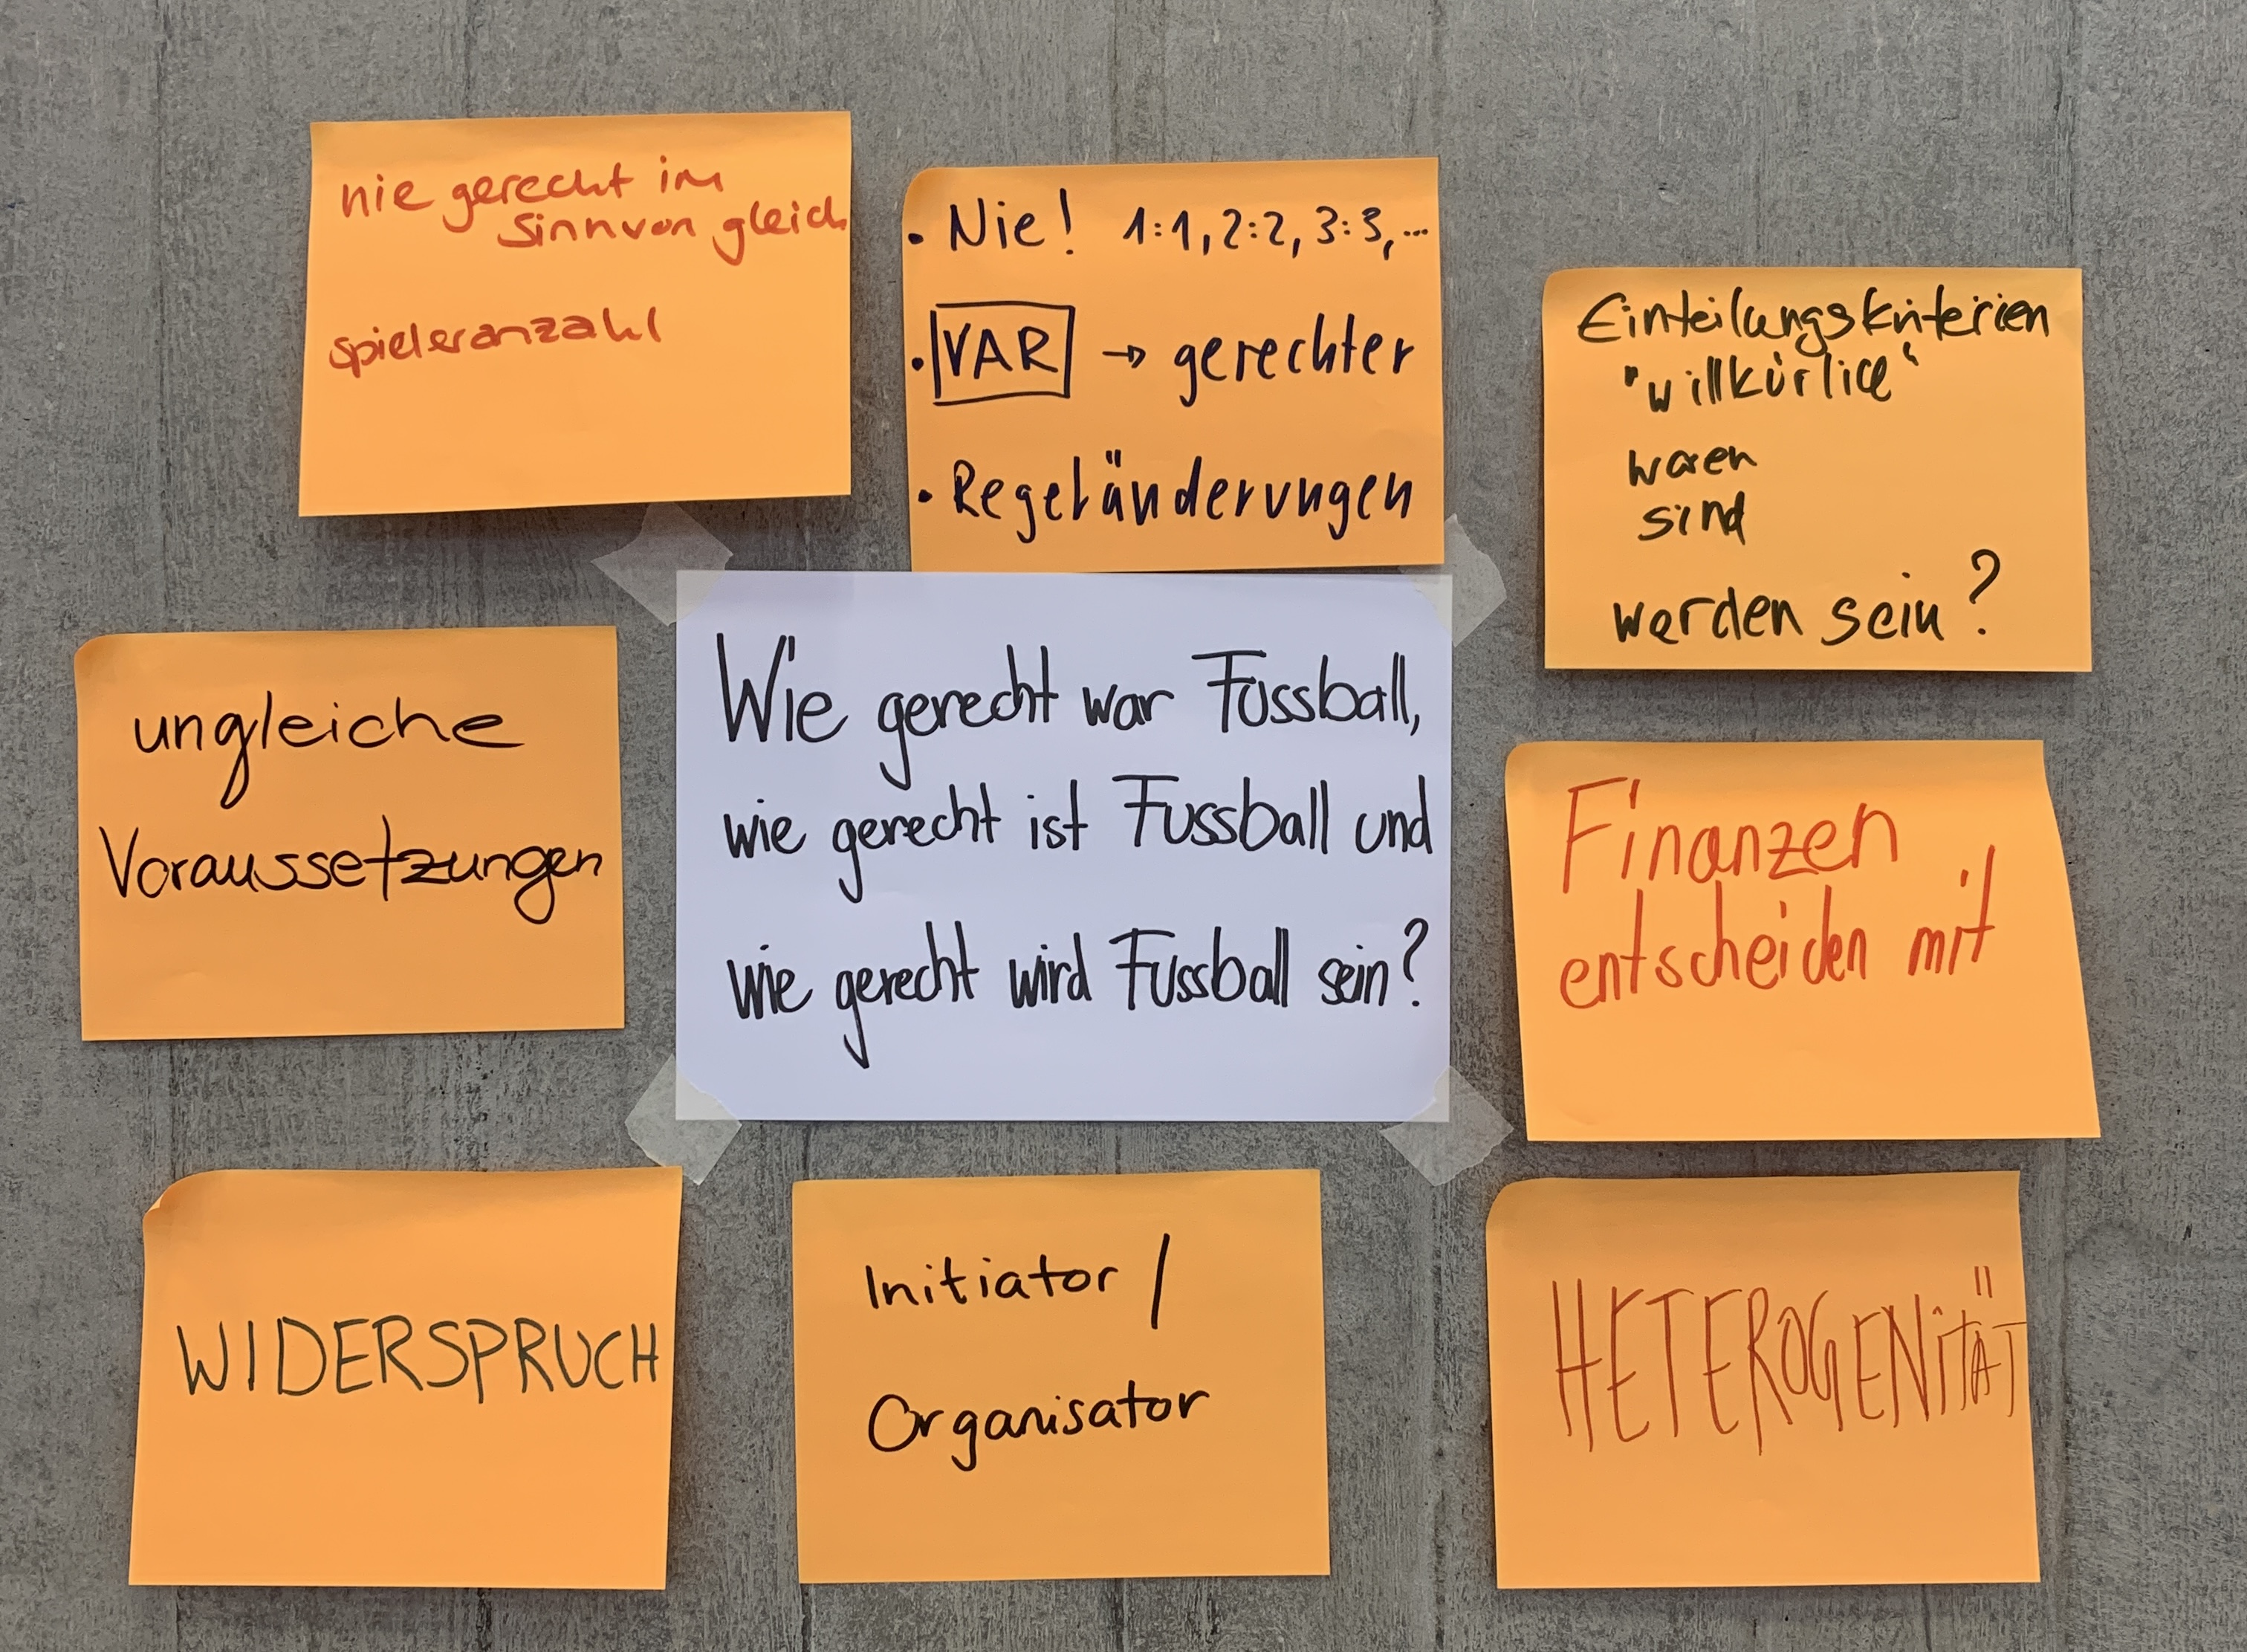 nie gerecht im
Sinn von gleich
spieleranzahl
• Nie! 1:1, 2:2, 3:3, ...
• VAR → gerechter
• Regeländerungen
Einteilungskriterien
"willkürlich"
waren
sind
werden sein?
ungleiche
Voraussetzungen
Wie gerecht war Fussball,
wie gerecht ist Fussball und
wie gerecht wird Fussball sein?
Finanzen
entscheiden mit
WIDERSPRUCH
Initiator /
Organisator
HETEROGENITÄT